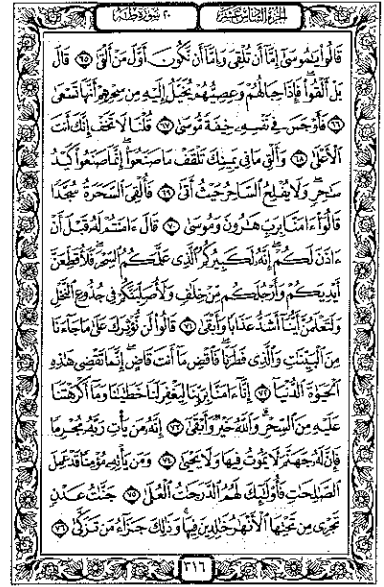 الجزء السادس عشر ٢٠ سورة طه
قَالُوا۟ يَـٰمُوسَىٰٓ إِمَّآ أَن تُلْقِىَ وَإِمَّآ أَن نَّكُونَ أَوَّلَ مَنْ أَلْقَىٰ ٦٥ قَالَ
بَلْ أَلْقُوا۟ فَإِذَا حِبَالُهُمْ وَعِصِيُّهُمْ يُخَيَّلُ إِلَيْهِ مِن سِحْرِهِمْ أَنَّهَا تَسْعَىٰ
٦٦ فَأَوْجَسَ فِى نَفْسِهِۦ خِيفَةً مُّوسَىٰ ٦٧ قُلْنَا لَا تَخَفْ إِنَّكَ أَنتَ
ٱلْأَعْلَىٰ ٦٨ وَأَلْقِ مَا فِى يَمِينِكَ تَلْقَفْ مَا صَنَعُوٓا۟ إِنَّمَا صَنَعُوا۟ كَيْدُ
سَـٰحِرٍ وَلَا يُفْلِحُ ٱلسَّاحِرُ حَيْثُ أَتَىٰ ٦٩ فَأُلْقِىَ ٱلسَّحَرَةُ سُجَّدًا
قَالُوٓا۟ ءَامَنَّا بِرَبِّ هَـٰرُونَ وَمُوسَىٰ ٧٠ قَالَ ءَامَنتُمْ لَهُۥ قَبْلَ أَنْ
ءَاذَنَ لَكُمْ إِنَّهُۥ لَكَبِيرُكُمُ ٱلَّذِى عَلَّمَكُمُ ٱلسِّحْرَ فَلَأُقَطِّعَنَّ
أَيْدِيَكُمْ وَأَرْجُلَكُم مِّنْ خِلَـٰفٍ وَلَأُصَلِّبَنَّكُمْ فِى جُذُوعِ ٱلنَّخْلِ
وَلَتَعْلَمُنَّ أَيُّنَآ أَشَدُّ عَذَابًا وَأَبْقَىٰ ٧١ قَالُوا۟ لَن نُّؤْثِرَكَ عَلَىٰ مَا جَآءَنَا
مِنَ ٱلْبَيِّنَـٰتِ وَٱلَّذِى فَطَرَنَا فَٱقْضِ مَآ أَنتَ قَاضٍ إِنَّمَا تَقْضِى هَـٰذِهِ
ٱلْحَيَوٰةَ ٱلدُّنْيَآ ٧٢ إِنَّآ ءَامَنَّا بِرَبِّنَا لِيَغْفِرَ لَنَا خَطَـٰيَـٰنَا وَمَآ أَكْرَهْتَنَا
عَلَيْهِ مِنَ ٱلسِّحْرِ وَٱللَّهُ خَيْرٌ وَأَبْقَىٰٓ ٧٣ إِنَّهُۥ مَن يَأْتِ رَبَّهُۥ مُجْرِمًا
فَإِنَّ لَهُۥ جَهَنَّمَ لَا يَمُوتُ فِيهَا وَلَا يَحْيَىٰ ٧٤ وَمَن يَأْتِهِۦ مُؤْمِنًا قَدْ عَمِلَ
ٱلصَّـٰلِحَـٰتِ فَأُو۟لَـٰٓئِكَ لَهُمُ ٱلدَّرَجَـٰتُ ٱلْعُلَىٰ ٧٥ جَنَّـٰتُ عَدْنٍ
تَجْرِى مِن تَحْتِهَا ٱلْأَنْهَـٰرُ خَـٰلِدِينَ فِيهَا وَذَٰلِكَ جَزَآءُ مَن تَزَكَّىٰ ٧٦
٣١٦